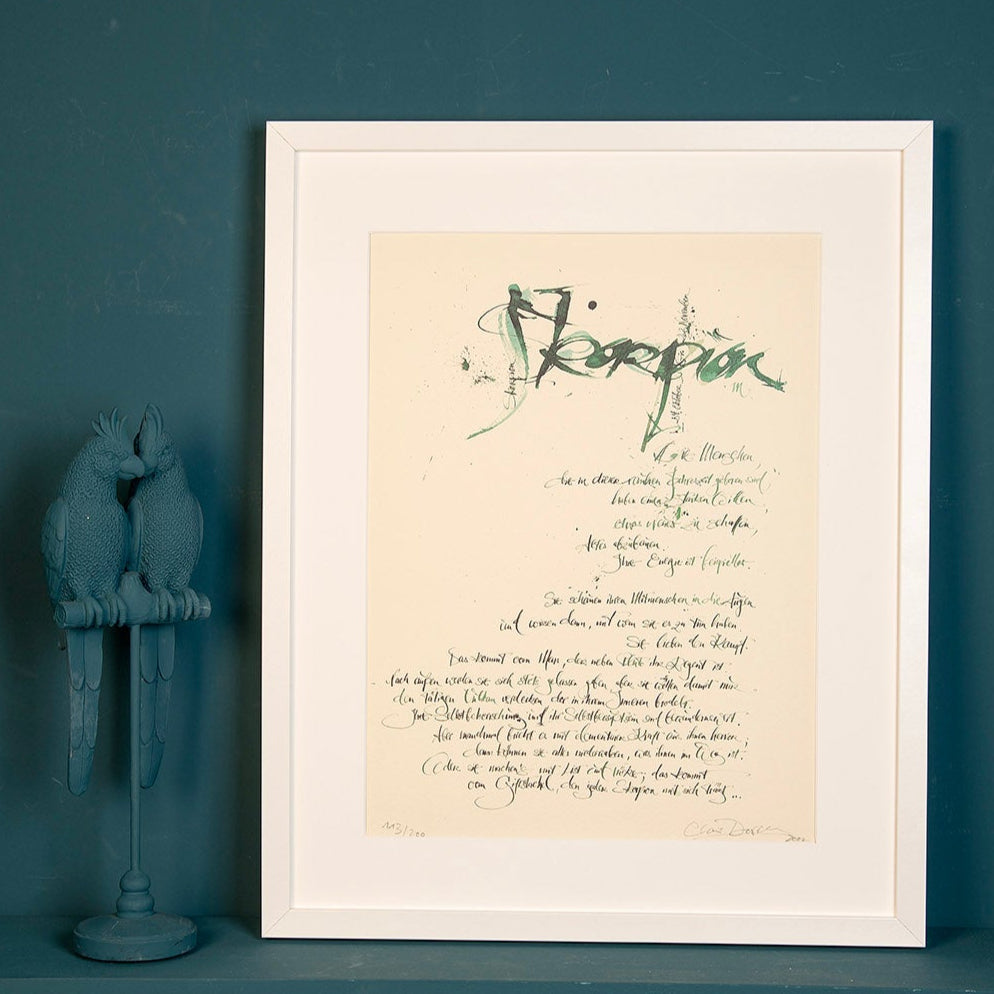 Skorpion
Skorpion
Menschen
die in dieser Jahreszeit geboren sind,
haben einen starken Willen
etwas Neues zu schaffen,
Altes
Ihre Energie ist
Sie ihren Mitmenschen in die Augen
und wissen dann, mit wem sie es zu tun haben.
Sie lieben den Kampf.
Das kommt vom Mars, der neben Pluto ihr Regent ist.
Nach außen werden sie sich stets gelassen geben aber sie wollen damit nur
den tätigen Vulkan verdecken der in ihrem Inneren brodelt.
Ihre Selbstbeherrschung und ihr Selbstbewußtsein sind bewundernswert.
Aber manchmal bricht es mit elementarer Kraft aus ihnen hervor,
dann können sie alles was ihnen im Weg ist.
Oder sie machen's mit List und Tücke; das kommt
vom Giftstachel, den jeder Skorpion mit sich trägt...
113/200